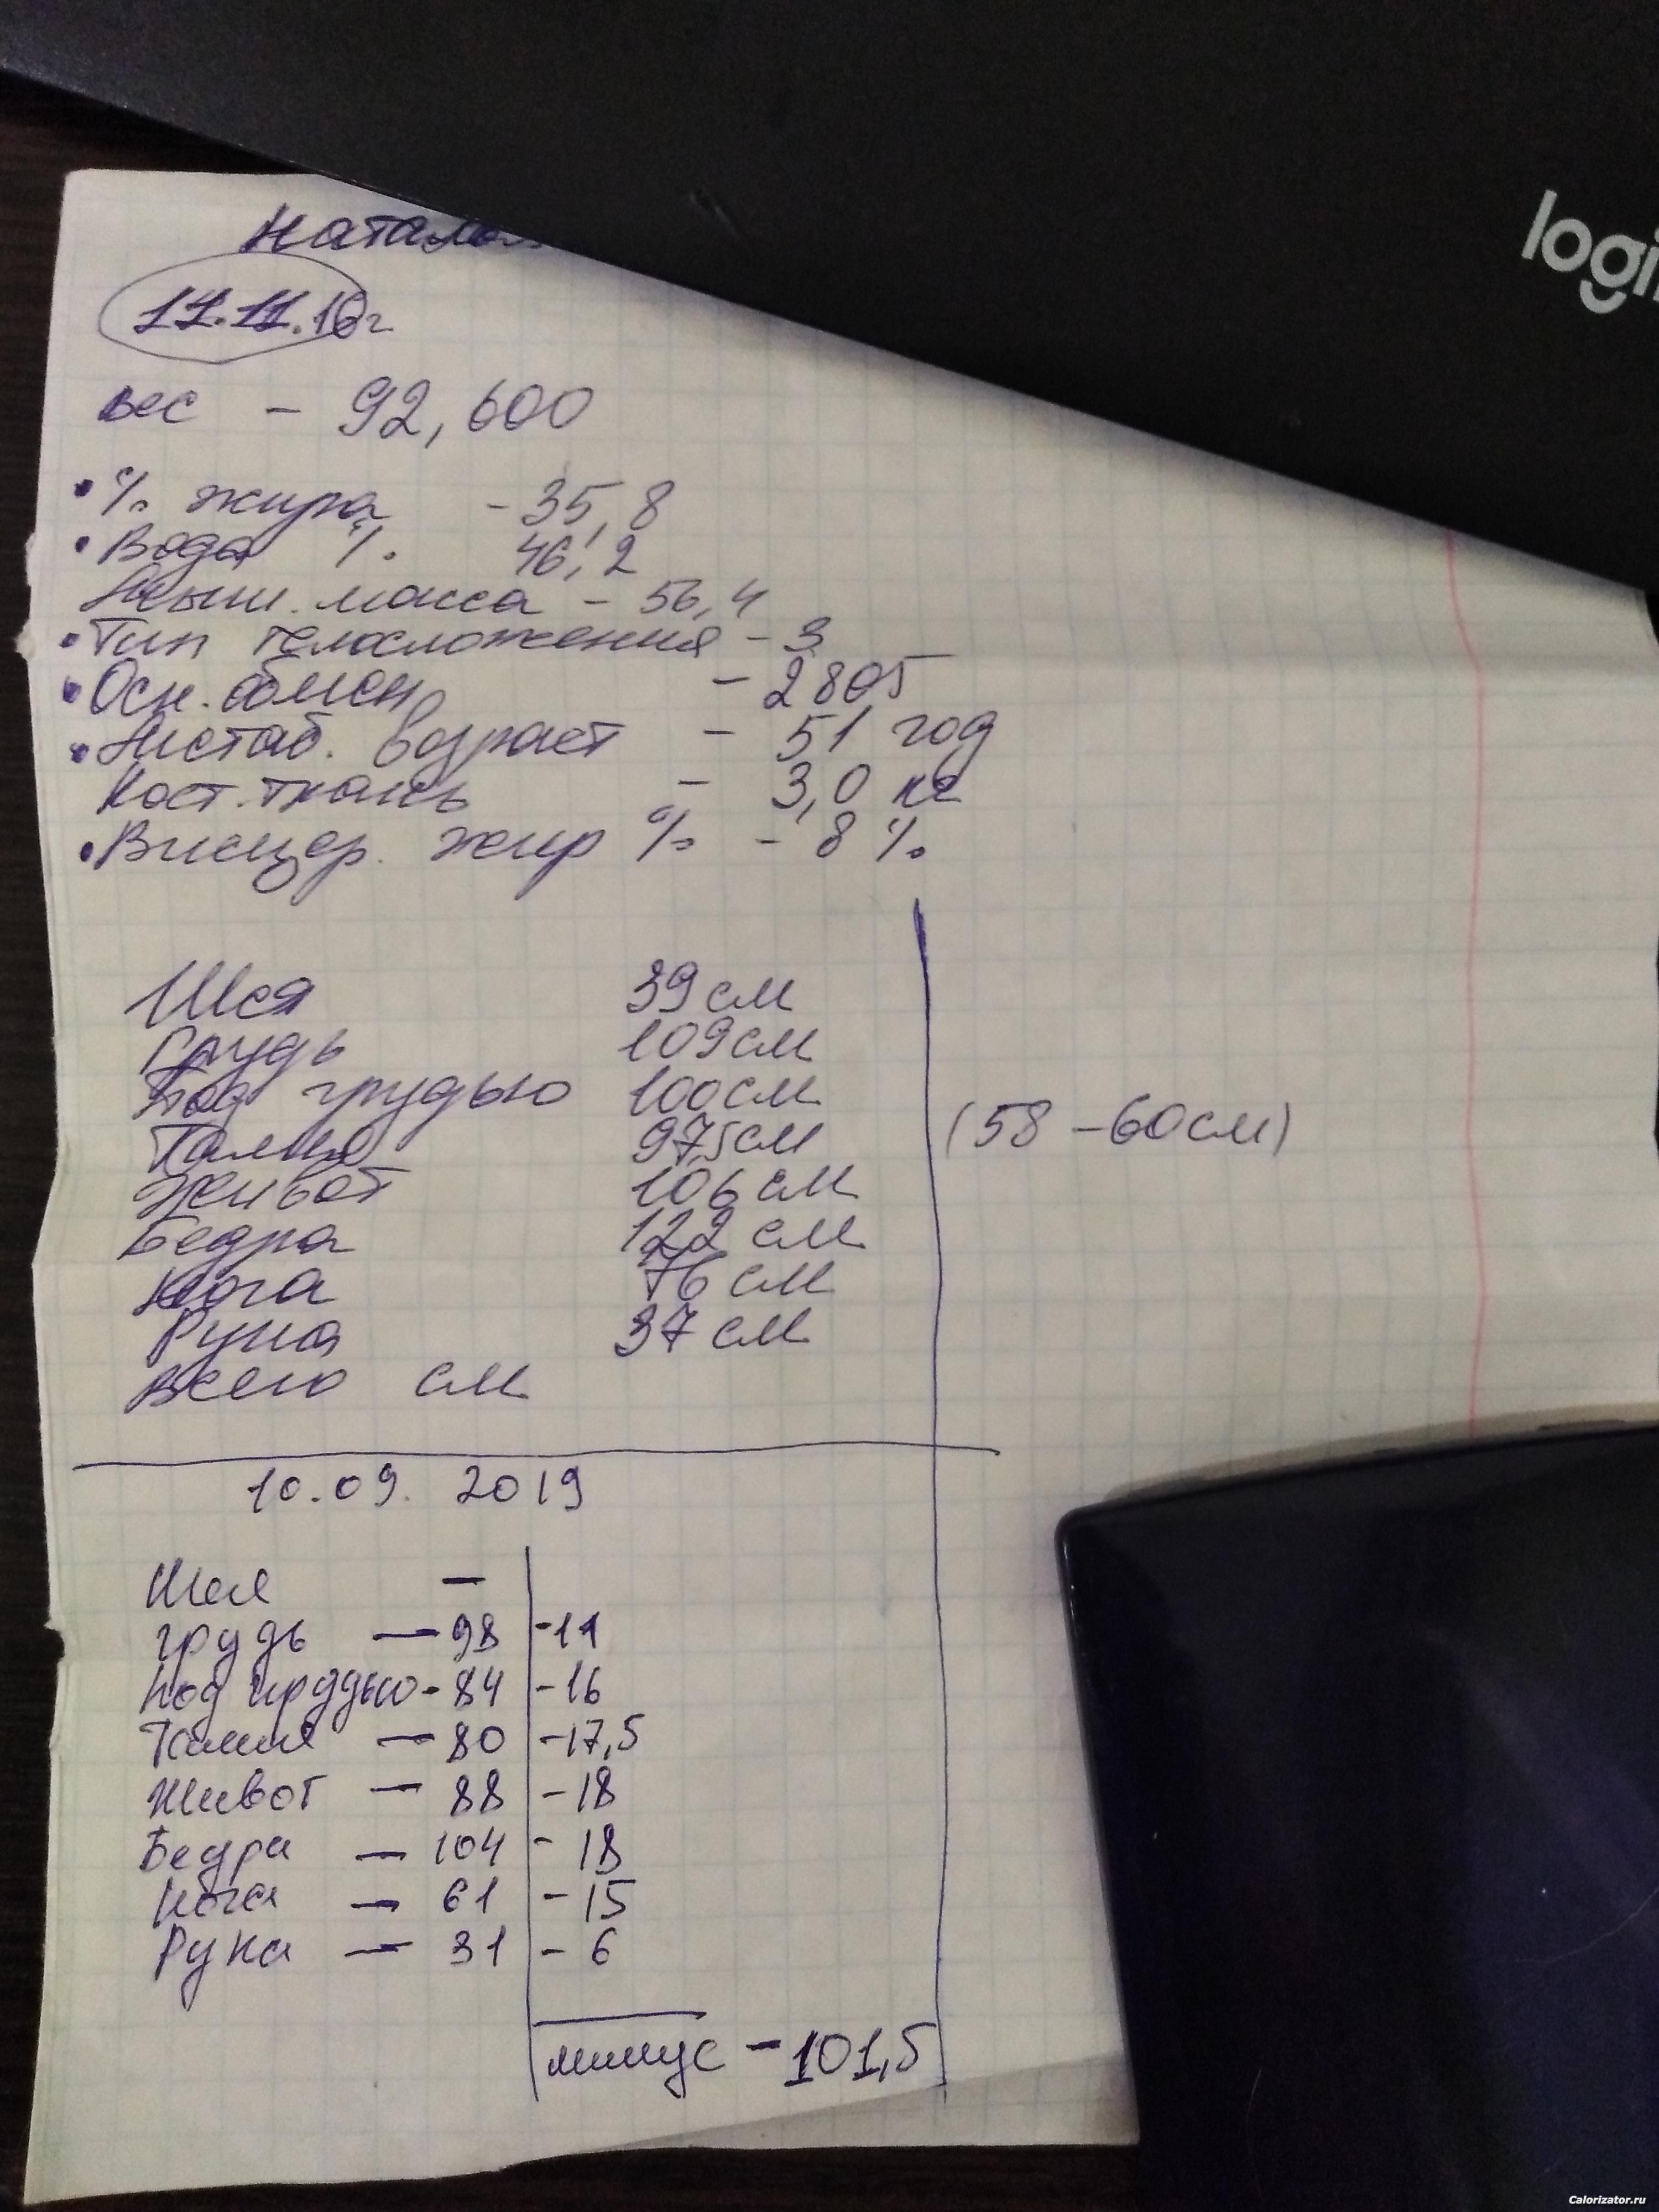 logi
Наталья
17.11.16г
вес - 92,600
• % жира - 35,8
• Вода % 46,2
Мыш. масса - 56,4
• Тип телосложения - 3
• Осн. обмен - 2805
• Метаб. возраст - 51 год
Кост. ткань - 3,0 кг
• Висцер. жир % - 8 %
Шея 39 см
Грудь 109 см
Под грудью 100 см
Талия 97,5 см
(58 - 60 см)
Живот 106 см
Бедра 122 см
Нога 76 см
Рука 37 см
Всего см
10.09.2019
Шея —
грудь — 98 -11
Под грудью - 84 -16
Талия — 80 -17,5
Живот — 88 -18
Бедра — 104 - 18
Нога — 61 - 15
Рука — 31 - 6
минус - 101,5
Calorizator.ru